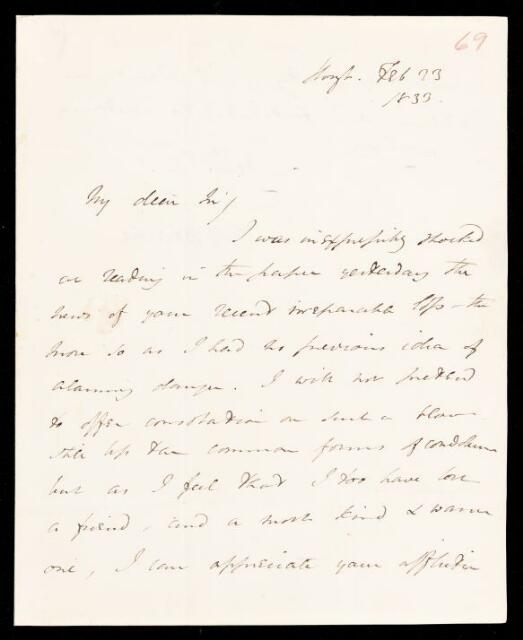 69
Slough. Feb 23
1833.
My dear Sir/
I was inexpressibly shocked
on reading in the paper yesterday the
news of your recent irreparable loss – the
more so as I had no previous idea of
alarming danger. I will not pretend
to offer consolation on such a blow
still less the common forms of condolence
but as I feel that I too have lost
a friend, and a most kind & warm
one, I can appreciate your affliction